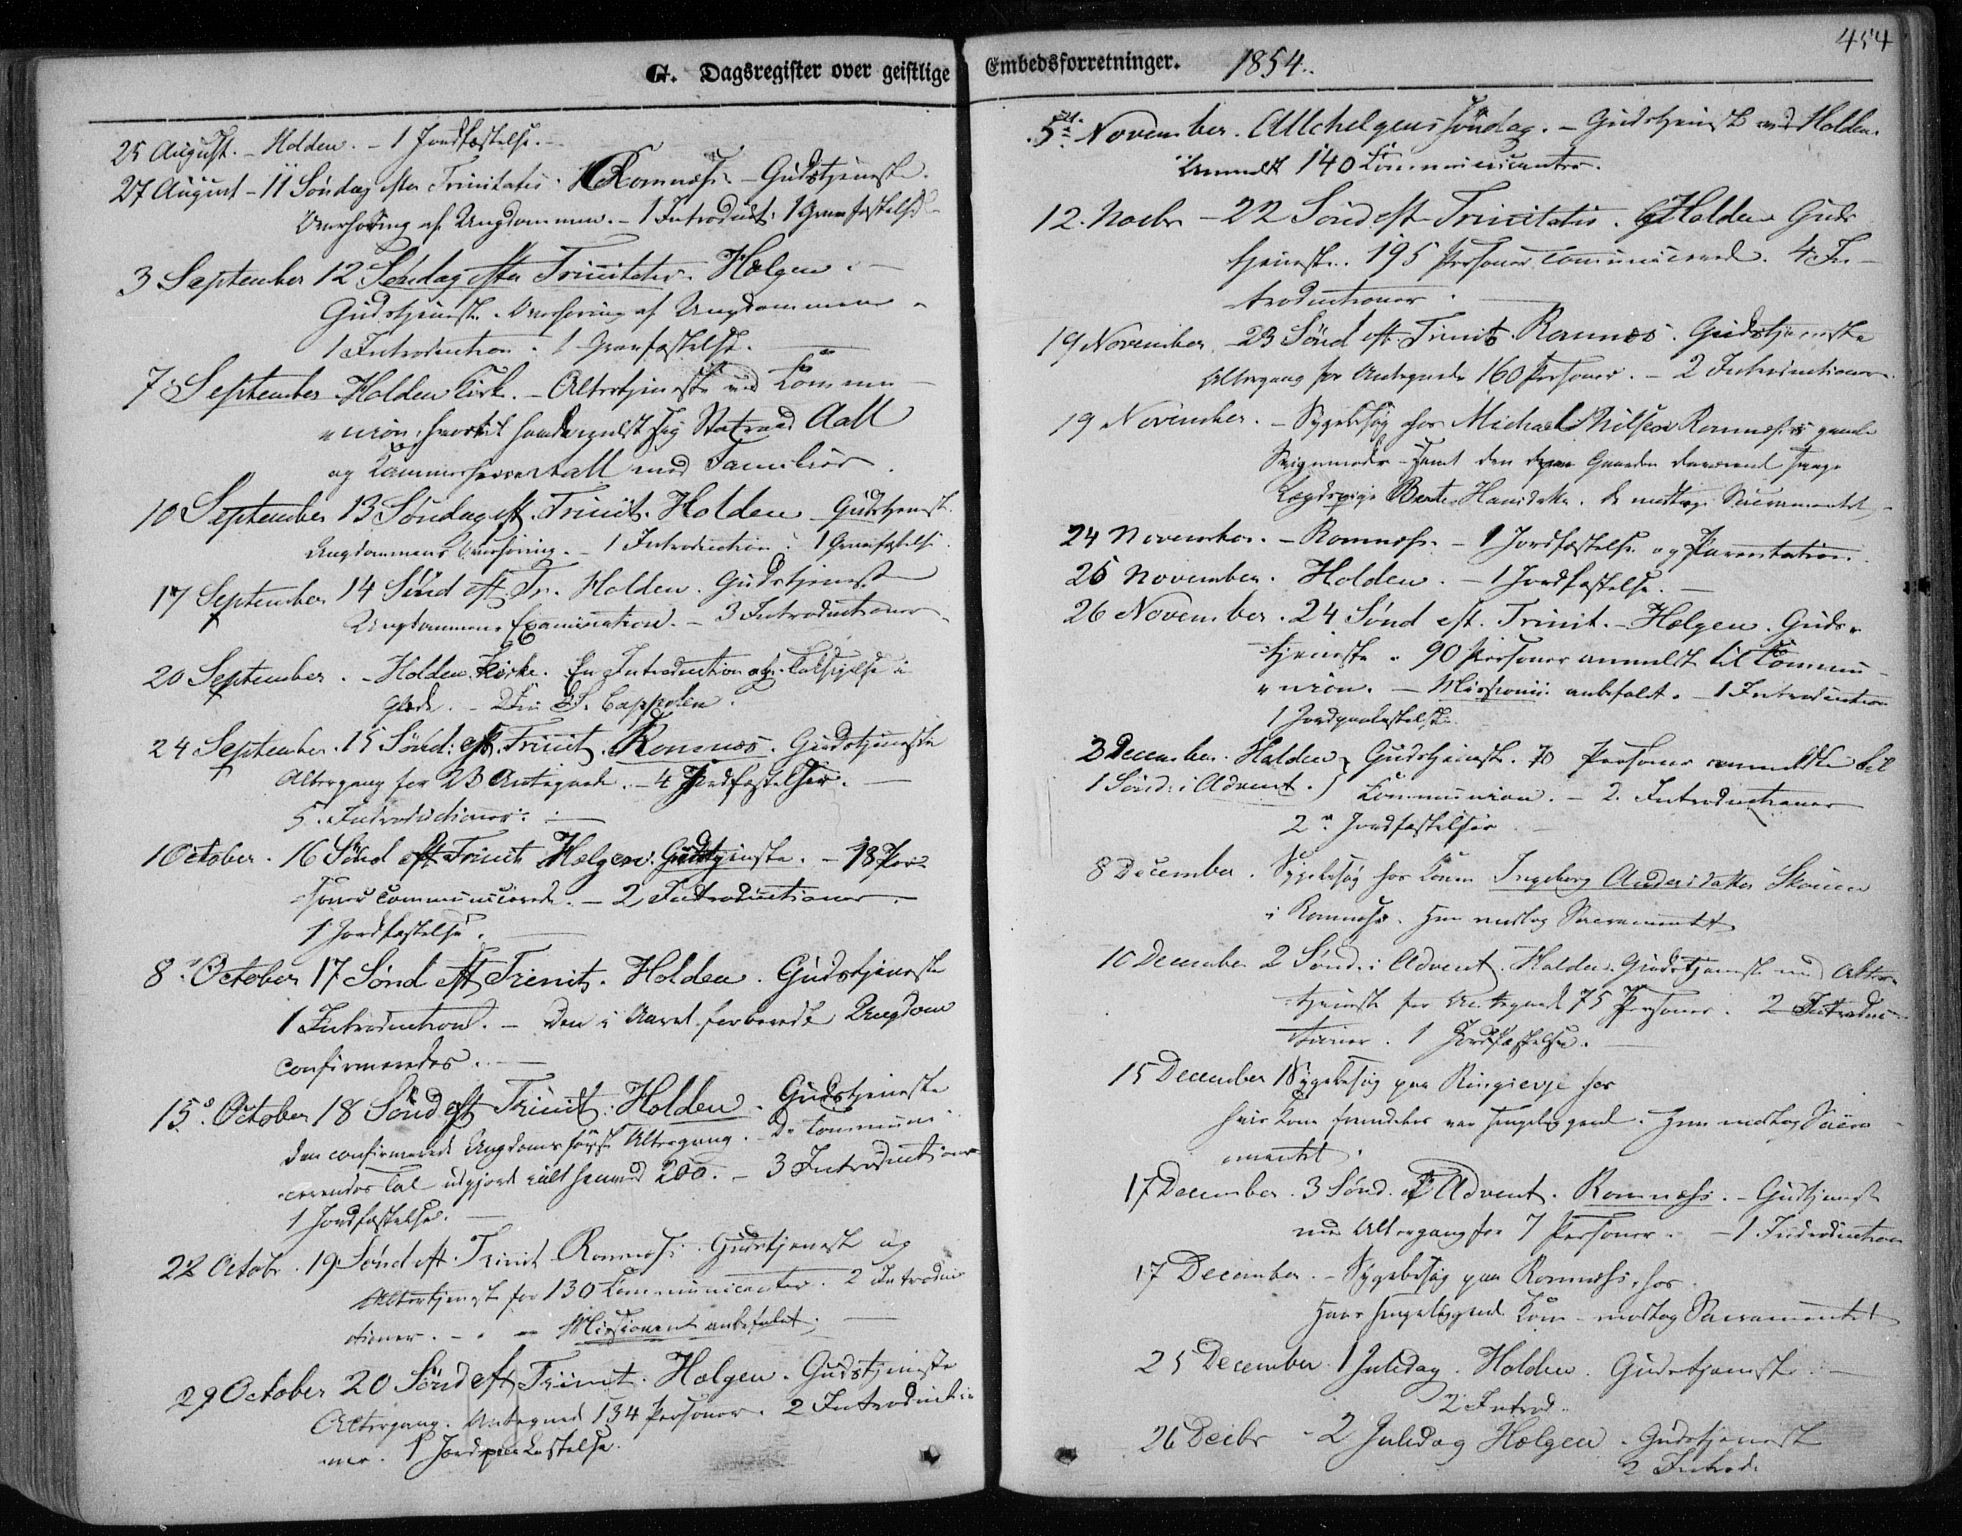 G. Dagsregister over geistlige
25 August. – Holden. – 1 Jordfæstelse. –
27 August – 11 Søndag efter Trinitatis. Romnæs – Gudstjeneste.
Overhøring af Ungdommen. – 1 Introduct: 1 Gravfæstelse
3 September 12 Søndag efter Trinitatis. Helgen. –
Gudstjeneste. Overhøring af Ungdommen –
1 Introduction. 1 Gravfæstelse.
7 September Holden Kirk. – Altertjeneste med Commu-
nion, hvortil havde meldt sig Statraad Aall
og Kammerherre Aall med Familier.
10 September 13 Søndag eft. Trinit. Holden Gudstjenest.
Ungdommens Overhøring. – 1 Introduction. 1 Gravfæstelse.
17 September 14 Sønd eft. Tr. Holden. Gudstjeneste
Ungdommens Examination. – 3 Introductioner.
20 September. – Holden Kirke. En Introduction og Taksigelse i
Cappelen.
24 September. 15 Sønd: eft. Trinit. Romnæs. Gudstjeneste
Altergang for 23 Antegnede. – 4 Jordfæstelser. –
5 Introductioner. –
1 October. 16 Sønd eft Trinit Helgen. Gudstjeneste. – 18 Per-
soner communicerede. – 2 Introductioner –
1 Jordfæstelse.
8 October 17 Sønd eft Trinit. Holden. Gudstjeneste
1 Introduction. – Den i Aaret forberedte Ungdom
confirmeredes. –
15 October 18 Sønd eft Trinit: Holden. Gudstjeneste
den confirmerede Ungdoms første Altergang. – De Communi-
cerendes Tal udgjorde 200. – 3 Introductioner
1 Jordfæstelse. –
22 Octobr. 19 Sønd eft. Trinit Romnæs. Gudstjeneste og
Altertjenest for 130 Communicanter. 2 Introdu-
ctioner. – Missionen anbefalet. –
29 October 20 Sønd eft Trinit. Helgen. Gudstjeneste
Altergang. Antegnede 134 Personer. 2 Introductio-
ner. 1 Jordpaakastelse.
Embedsforretninger. 1854.
454
5 November. Allehelgens Søndag. – Gudstjeneste ved Holden.
Anmeldt 140 Communicanter.
12. Novbr – 22 Sønd eft Trinitatis. Holden Guds
tjeneste. 195 Personer communicerede. 4 In-
troductioner.
19 November. 23 Sønd eft. Trinit Romnæs. Gudstjeneste
Altergang for Antegnede 160 Personer. – 2 Introductioner.
19 November. – Sygebesøg hos Michael Nilsen Romnæs's gamle
samt den paa Gaarden værende syge
Lægdspige Berte Hansdatter. De modtog Sacramentet.
24 November. – Romnæs. – 1 Jordfæstelse og Parentation.
25 November. Holden. – 1 Jordfæstelse. –
26 November. 24 Sønd eft. Trinit. – Helgen. Guds-
tjeneste. 90 Personer anmeldt til Commu-
nion. – Missionen anbefalet. – 1 Introduction
1 Jordpaakastelse.
3 December. Holden. Gudstjeneste. 70 Personer anmeldte til
1 Sønd: i Advent. Communion. – 2 Introductioner
2 Jordfæstelser
8 December. Sygebesøg hos Konen Ingeborg Andersdatter Skouen
i Romnæs. Hun modtog Sacramentet
10 December 2 Sønd. i Advent. Holden. Gudstjeneste med Alter-
tjeneste for Antegnede 75 Personer. 2 Introduc-
tioner. 1 Jordfæstelse. –
15 December Sygebesøg paa Ringsevje hos
hvis Kone fremdeles var sengeliggende. Hun modtog Sacra-
mentet.
17 December. 3 Sønd. i Advent. Romnæs. – Gudstjeneste
med Altergang for 7 Personer. – 1 Introduction
17 December. – Sygebesøg paa Romnæs, hos
Hans sengeliggende Kone – modtog Sacramentet
25 December. 1 Juledag. Holden. Gudstjeneste. –
2 Introd.
26 Decbr – 2 Juledag Helgen. Gudstjeneste
2 Introd.